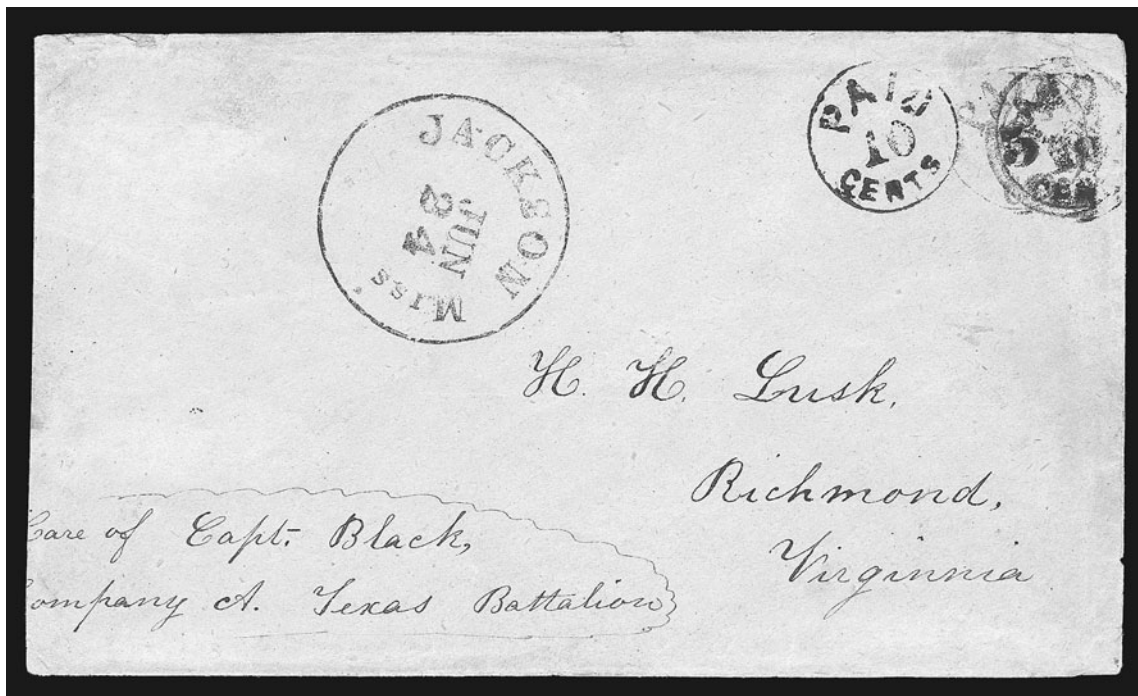 JACKSON
JUN
24
Miss
PAID
10
CENTS
PAID
5 10
CEN
H. H. Lusk,
Richmond,
Virginnia
Care of Capt. Black,
Company A. Texas Battalion